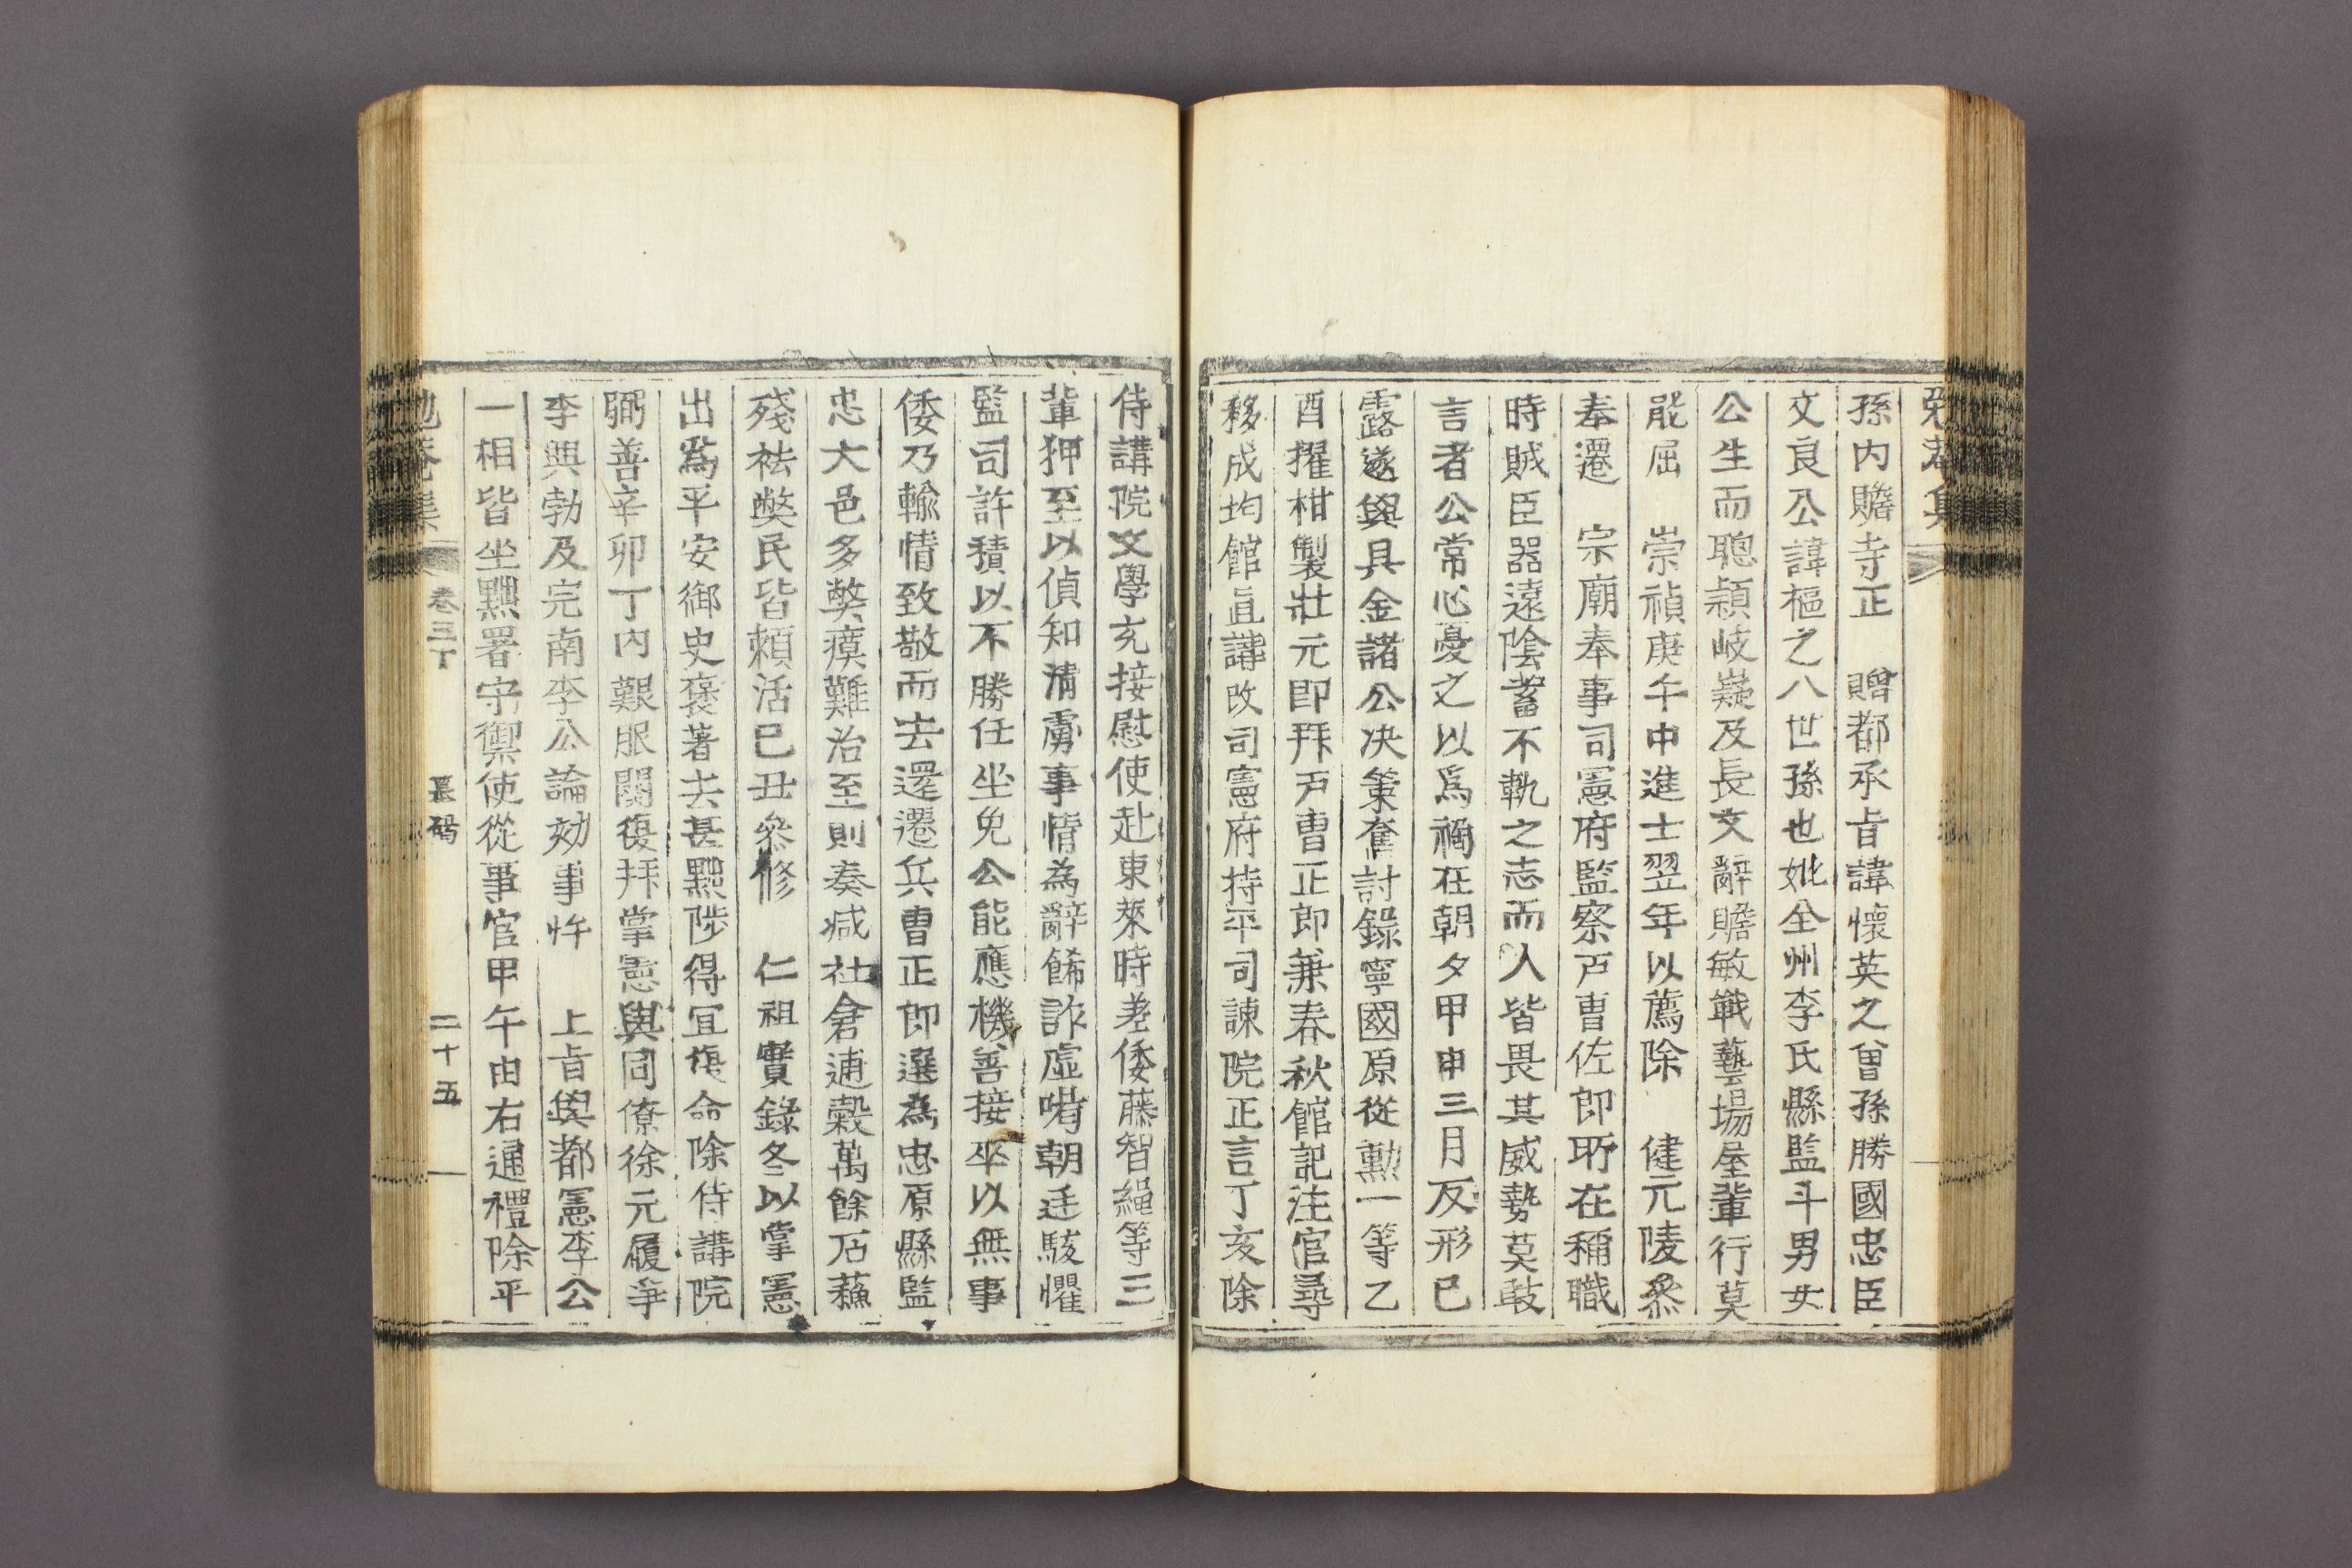 孫內贍寺正　贈都承旨諱懷英之曾孫勝國忠臣
文良公諱樞之八世孫也妣全州李氏縣監斗男女
公生而聰穎岐嶷及長文辭贍敏戰藝場屋輩行莫
能屈　崇禎庚午中進士翌年以薦除　健元陵叅
奉遷　宗廟奉事司憲府監察戶曹佐郎所在稱職
時賊臣器遠陰蓄不軌之志而人皆畏其威勢莫敢
言者公常心憂之以爲禍在朝夕甲申三月反形已
露遂與具金諸公决策奮討錄寧國原從勳一等乙
酉擢柑製壯元卽拜戶曹正郎兼春秋館記注官尋
移成均館直講改司憲府持平司諫院正言丁亥除
侍講院文學充接慰使赴東萊時差倭藤智繩等三
輩狎至以偵知淸虜事情為辭餙詐虛喝朝廷駭懼
監司許積以不勝任坐免公能應機善接卒以無事
倭乃輸情致敬而去還遷兵曹正郎選為忠原縣監
忠大邑多弊瘼難治至則奏减社倉逋穀萬餘石蘓
殘袪弊民皆頼活已丑叅修　仁祖實錄冬以掌憲
出爲平安御史褒著去甚黜陟得宜復命除侍講院
弼善辛卯丁內艱服闋復拜掌憲與同僚徐元履爭
李興勃及完南李公論効事忤　上旨與都憲李公
一相皆坐黜署守禦使從事官甲午由右通禮除平
卷三丁
長碣
二十五